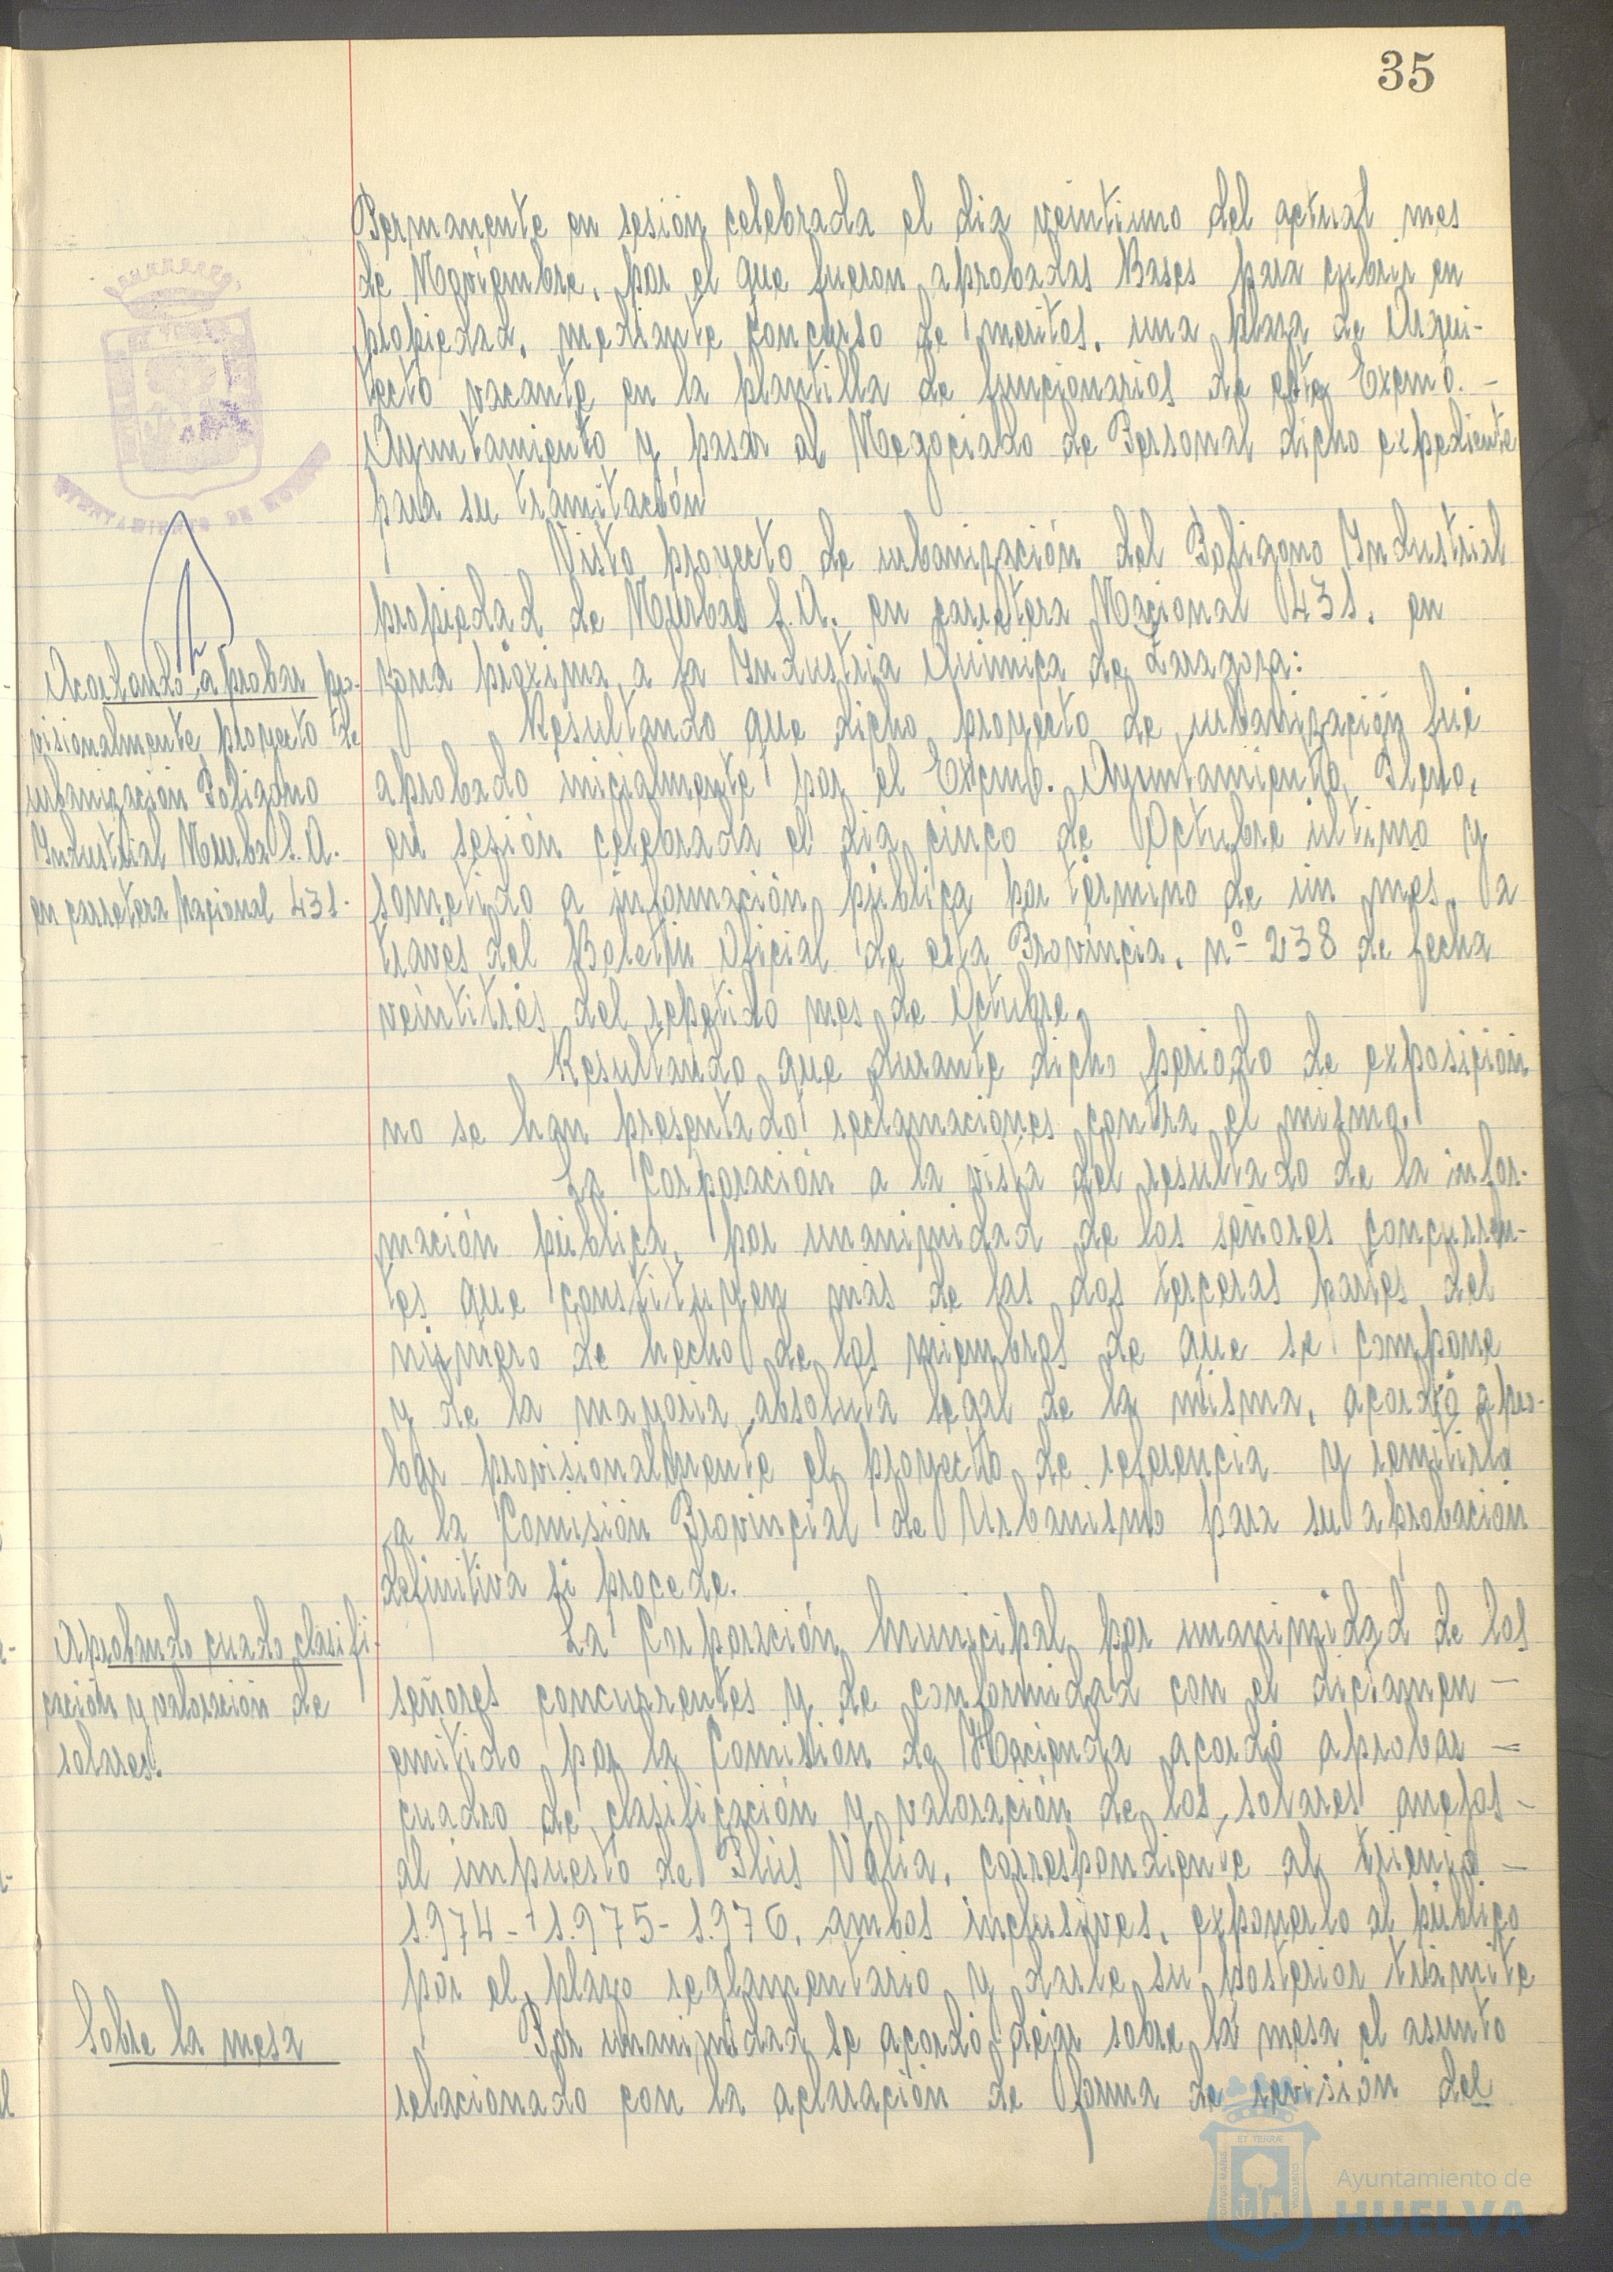 35
Permanente en sesión celebrada el dia veintiuno del actual mes
de Noviembre, por el que fueron aprobadas Bases para cubrir en
propiedad, mediante concurso de meritos, una plaza de Arqui-
tecto vacante en la plantilla de funcionarios de este Excmo. -
Ayuntamiento y pasar al Negociado de Personal dicho expediente
para su tramitación
Visto proyecto de urbanización del Poligono Industrial
propiedad de Nurba S.A. en carretera Nacional 431, en
zona próxima a la Industria Quimica de Zaragoza:
Resultando que dicho proyecto de urbanización fué
aprobado inicialmente por el Excmo. Ayuntamiento Pleno,
en sesión celebrada el dia cinco de Octubre último y
sometido a información pública por término de un mes, a
través del Boletin Oficial de esta Provincia, nº 238 de fecha
veintitrés del repetido mes de Octubre.
Resultando que durante dicho periodo de exposición
no se han presentado reclamaciones contra el mismo.
La Corporación a la vista del resultado de la infor-
mación pública, por unanimidad de los señores concurren-
tes que constituyen más de las dos terceras partes del
número de hecho de los miembros de que se compone
y de la mayoria absoluta legal de la misma, acordó apro-
bar provisionalmente el proyecto de referencia y remitirlo
a la Comisión Provincial de Urbanismo para su aprobación
definitiva si procede.
La Corporación Municipal por unanimidad de los
señores concurrentes y de conformidad con el dictamen -
emitido por la Comisión de Hacienda acordó aprobar -
cuadro de clasificación y valoración de los solares anejos -
al impuesto de Plus Valia, correspondiente al trienio -
1.974-1.975-1.976, ambos inclusives, exponerlo al público
por el plazo reglamentario y darle su posterior trámite
Por unanimidad se acordó dejar sobre la mesa el asunto
relacionado con la aclaración de forma de revisión del
Acordando aprobar pro-
visionalmente proyecto de
urbanización Poligono
Industrial Nurba S.A.
en carretera Nacional 431.
Aprobando cuadro clasifi-
cación y valoración de
solares.
Sobre la mesa
Ayuntamiento de
HUELVA